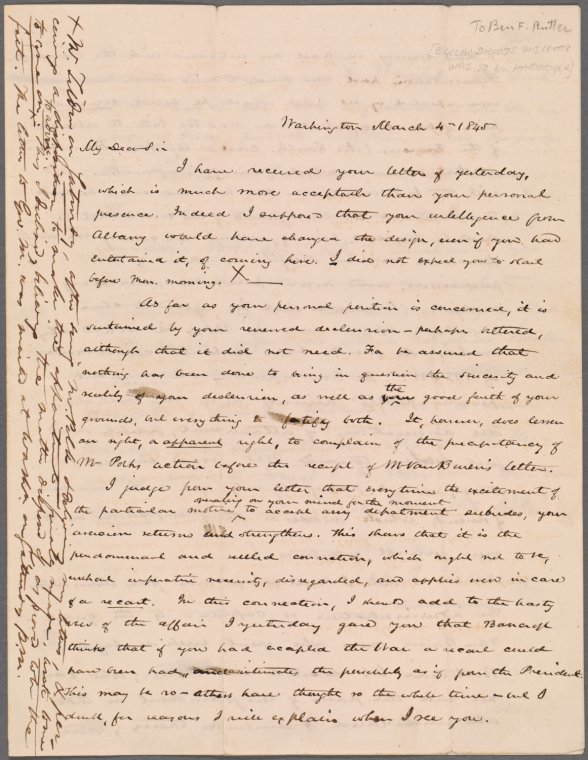 To Ben F. Butler
[Bigelow suggests this letter
was to
Washington March 4th 1845
My Dear Sir
I have received your letter of yesterday,
which is much more acceptable than your personal
presence. Indeed I suppose that your intelligence from
Albany would have changed the design, even if you had
entertained it, of coming here. I did not expect you to start
before Mon. morning. X
As far as your personal position is concerned, it is
sustained by your renewed declension – perhaps bettered,
although that it did not need. For be assured that
nothing has been done to bring in question the sincerity and
reality of your declension, as well as the good faith of your
grounds, but everything to fortify both. It, however, does lessen
our right, or apparent right, to complain of the precipitancy of
Mr Polks action before the receipt of Mr Van Buren's letter.
I judge from your letter that everytime the excitement of
operating on your mind for the moment
the particular motive to accept any department subsides, your
aversion returns and strengthens. This shows that it is the
predominant and settled conviction, which ought not to be,
without imperative necessity, disregarded, and applies even in case
of a recast. In this connection, I should add to the hasty
view of the affair I yesterday gave you that Bancroft
thinks that if you had accepted the War a recast could
have been had, and intimates the possibility as if from the President.
This may be so – others have thought so the whole time – but I
doubt, for reasons I will explain when I see you.
X Mr. Tilden on Saturday, after
the letter to Gov. M. was mailed at